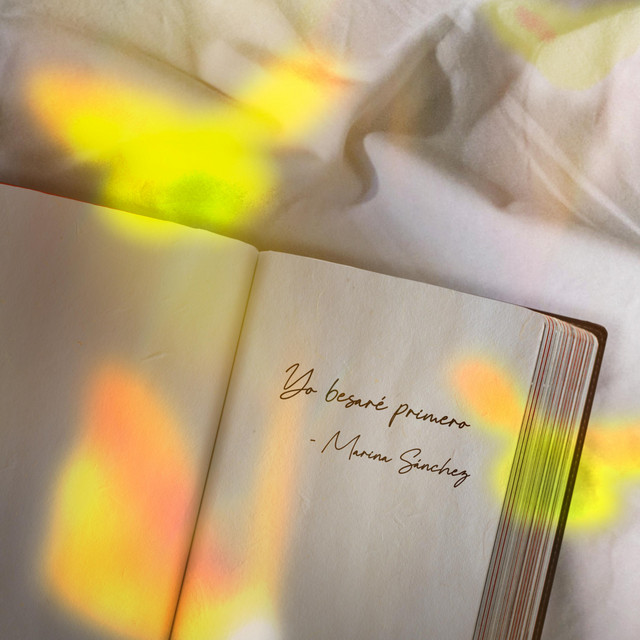 Yo besaré primero
- Marina Sánchez